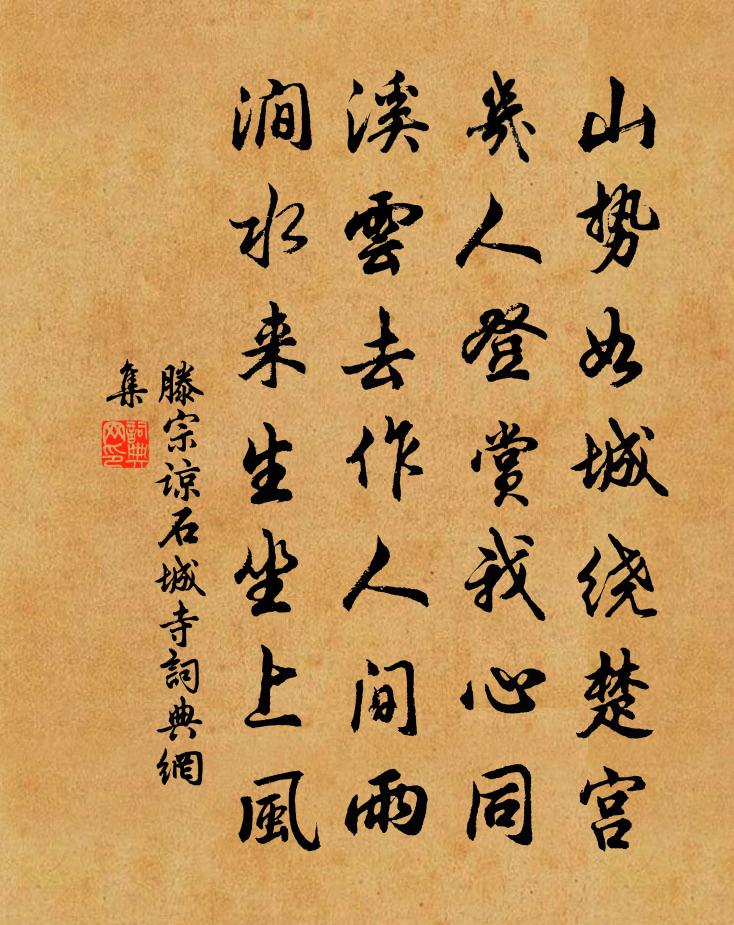 山势如城绕楚宫
幾人登赏我心同
溪雲去作人间雨
涧水来生坐上風
滕宗谅石城寺詞典網
集
詞典
网印